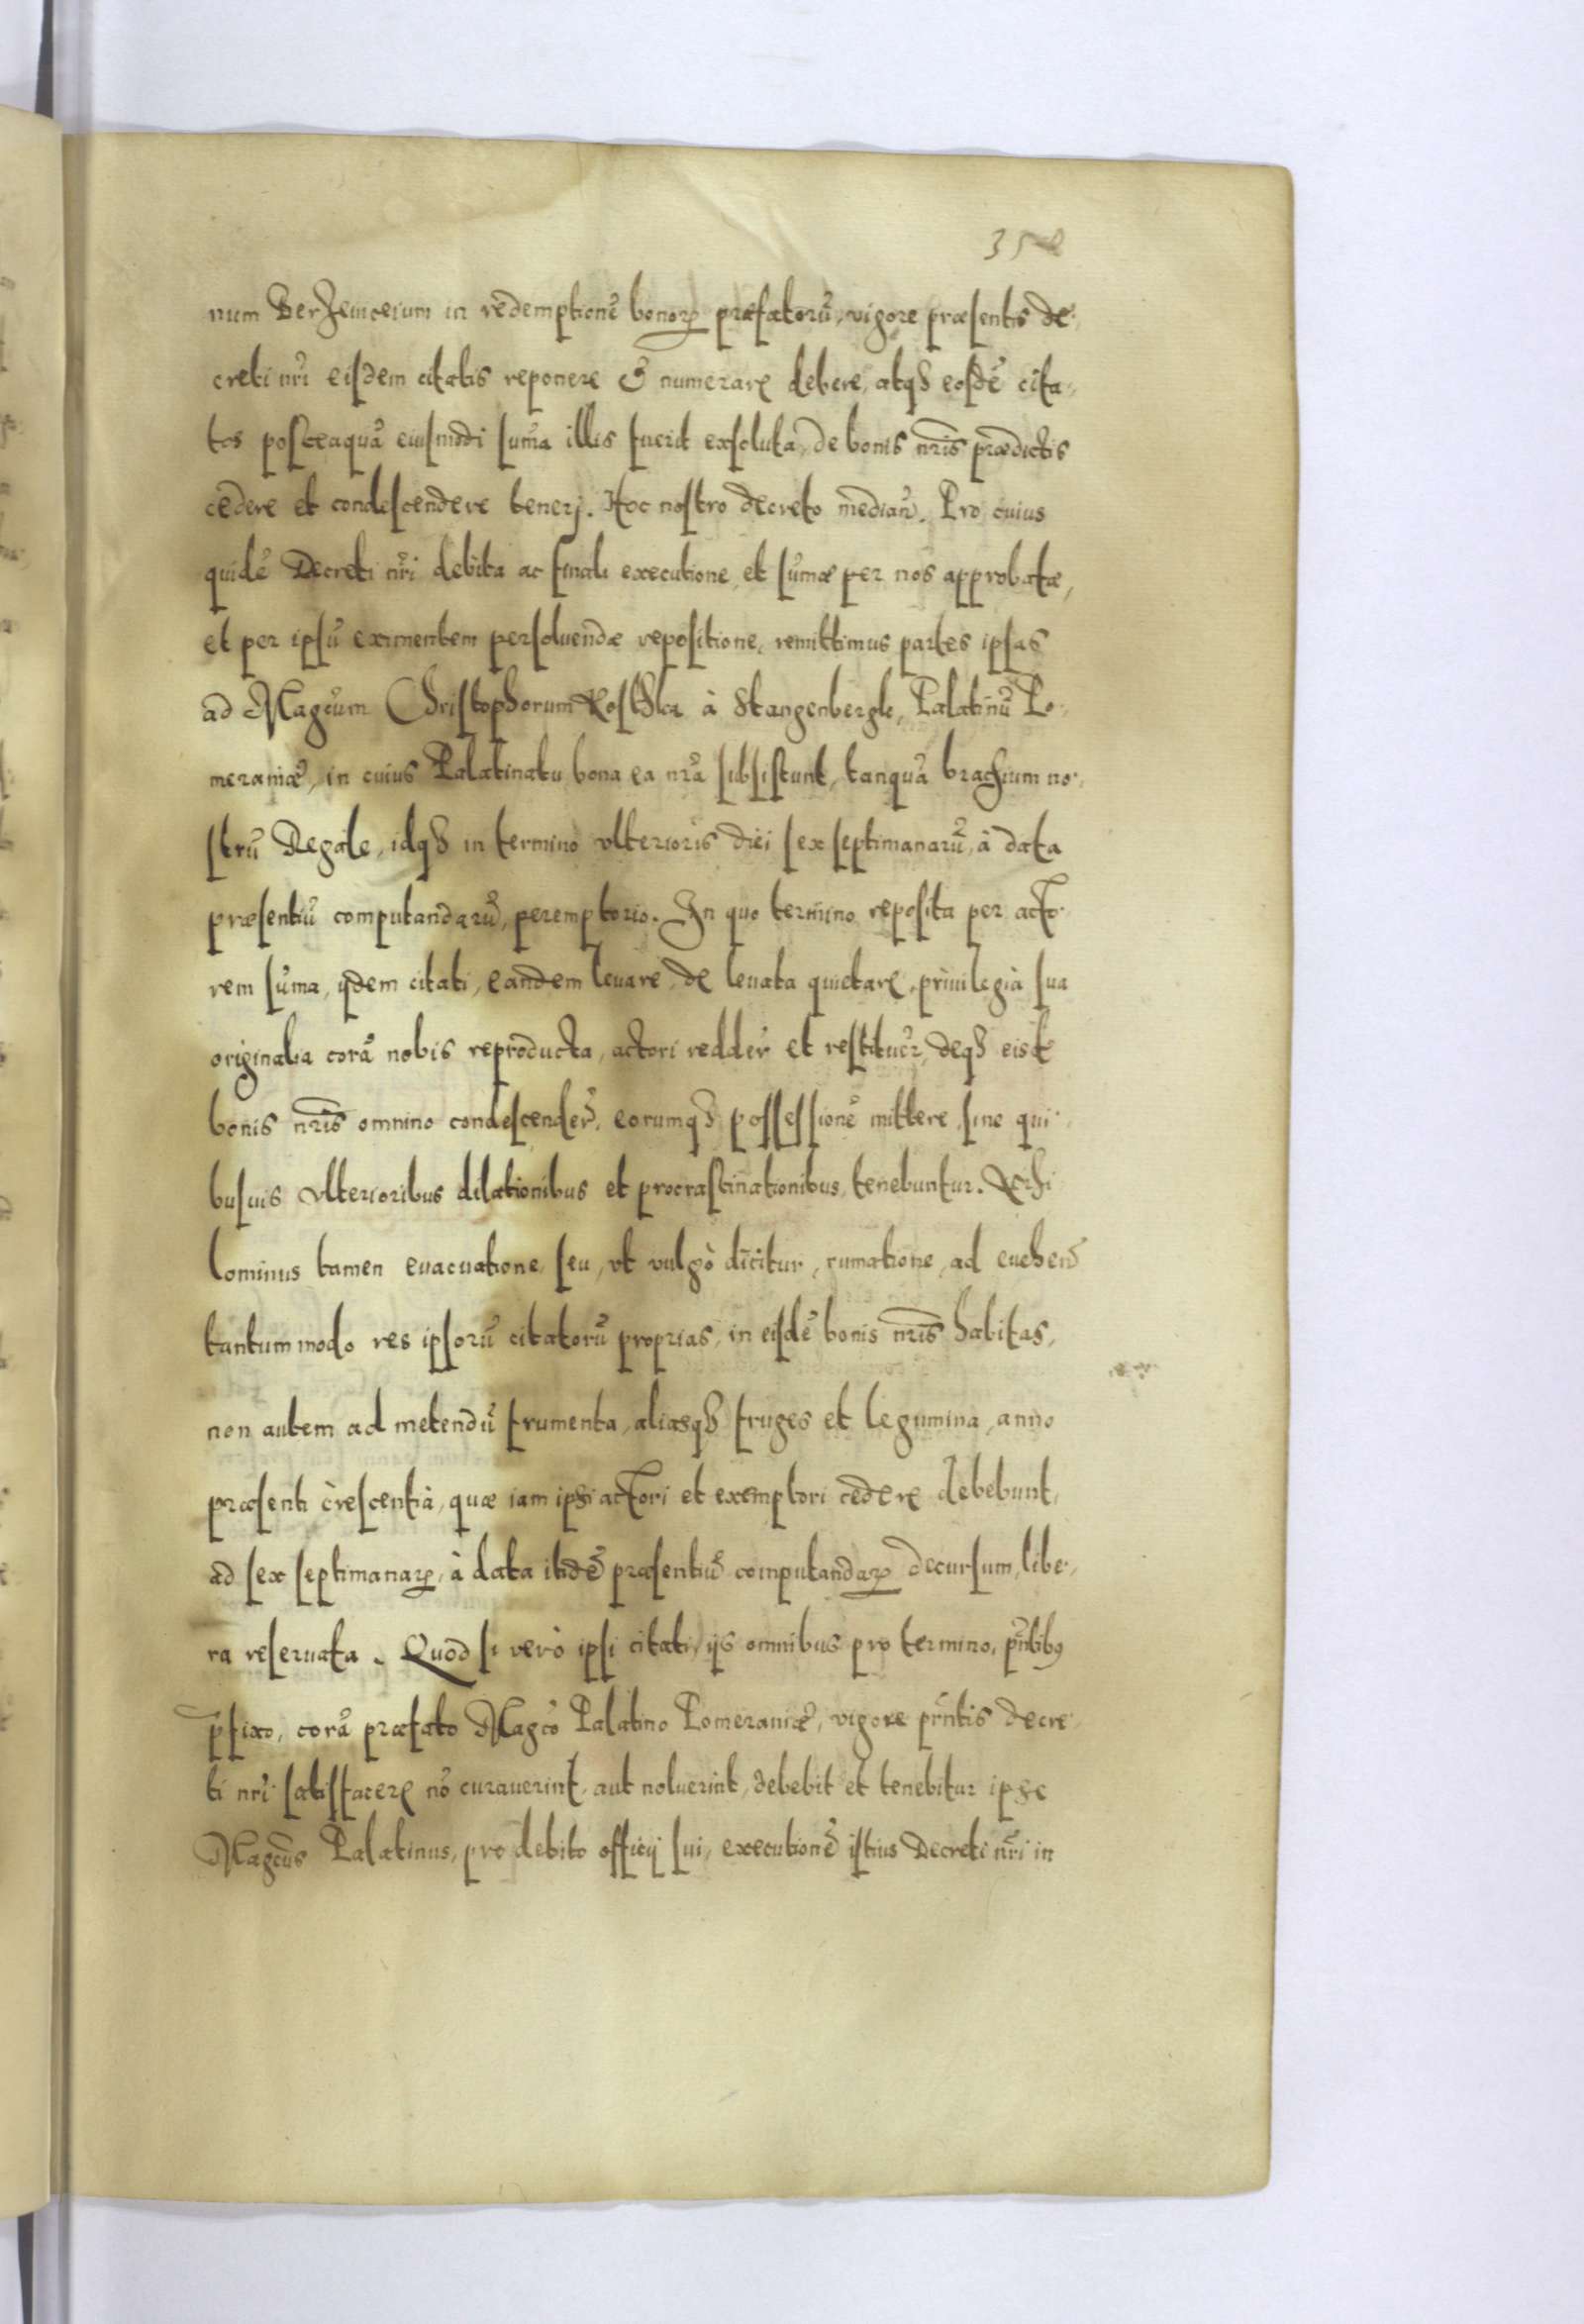 num Berzeuicium in redemptionē bonorꝝ præfatorū, vigore præsentis de-
creti nr̄i eisdem citatis reponere & numerare debere, atqʒ eosdē cita-
tos posteaquā eiusmodi sum̄a illis fuerit exsoluta, de bonis nr̄is prædictis
cedere et condescendere tenerj. Hoc nostro decreto median̄. Pro cuius
quidē Decreti nr̄i debita ac finali executione, et sum̄æ per nos approbatæ,
et per ipsū eximentem persoluendæ repositione, remittimus partes ipsas
ad Magcūm Christophorum Kosthka à Stangenbergk, Palatinū Po-
meraniæ, in cuius Palatinatu bona ea nr̄a subsistunt, tanquā brachium no-
strū Regale, idqʒ in termino vlterioris diei sex septimanarū, à data
præsentiū computandarū, peremptorio. In quo termino reposita per acto-
rem sum̄a, ijdem citati, eandem leuare, de leuata quietare, priuilegià sua
originalia corā nobis reproducta, actori redder̄ et restituer̄, deqʒ eisd̄
bonis nr̄is omnino condescender̄, eorumqʒ possessionē mittere, sine qui-
busuis vlterioribus dilationibus et procrastinationibus, tenebuntur. Nihi
lominus tamen euacuatione, seu, vt vulgò dicitur, rumatione, ad euehen̄
tantummodo res ipsorū citatorū proprias, in eisdē bonis nr̄is habitas,
non autem ad metendū frumenta, aliasqʒ fruges et legumina, anno
præsenti crescentia, quæ iam ipsi actori et exemptori cedere debebunt,
ad sex septimanarꝝ, à data itidē præsentiū computandarꝝ decursum, libe-
ra reseruata. Quod si verò ipsi citati, ijs omnibus pro termino, pn̄tibus
p̄fixo, corā præfato Magcō Palatino Pomeraniæ, vigore pn̄tis decre-
ti nr̄i satisfacere nō curauerint, aut noluerint, debebit et tenebitur ipse
Magcūs Palatinus, pro debito officij sui, executionē istius Decreti nr̄i in